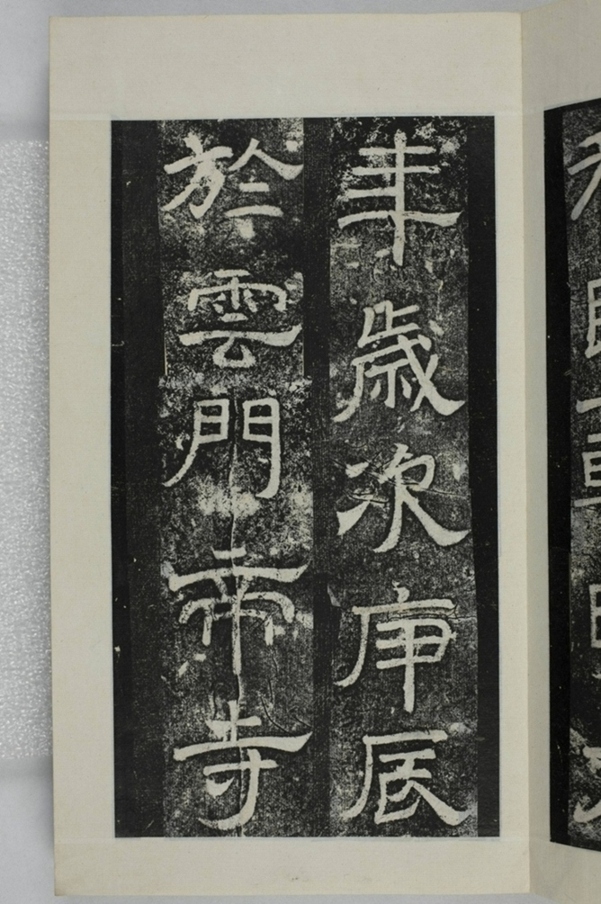 年歲次庚辰
於雲門帝寺